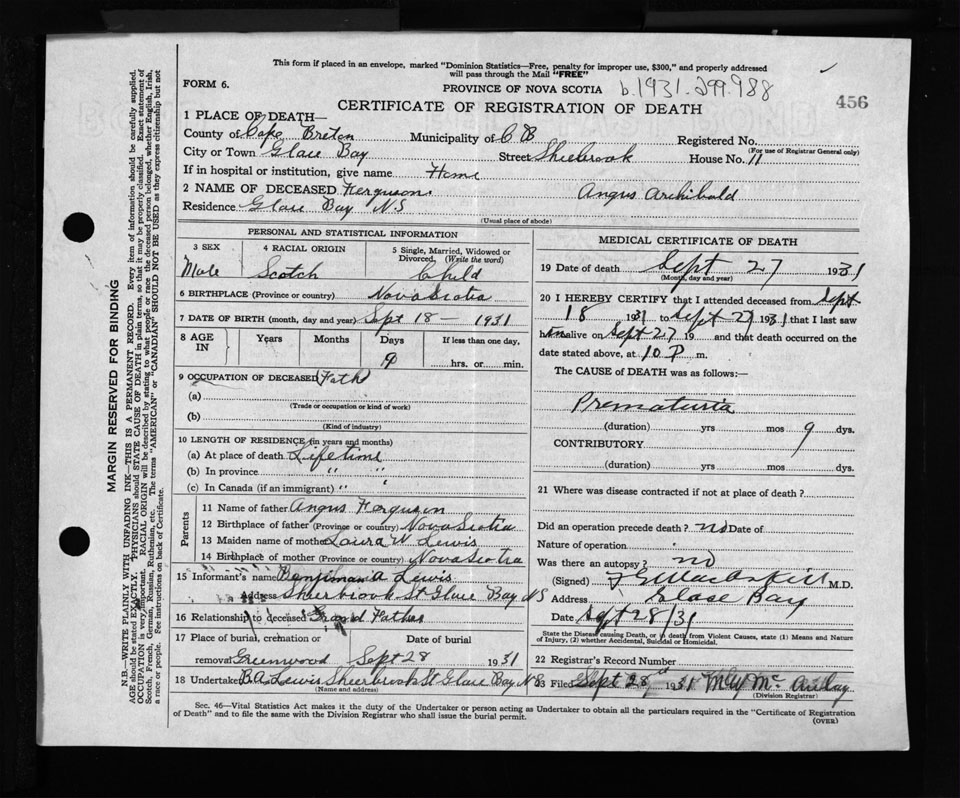 This form if placed in an envelope, marked "Dominion Statistics—Free, penalty for improper use, $300," and properly addressed
will pass through the Mail "FREE"
FORM 6.
PROVINCE OF NOVA SCOTIA b.1931-299-988
CERTIFICATE OF REGISTRATION OF DEATH 456
1 PLACE OF DEATH—
County of Cape Breton Municipality of C B Registered No.
(For use of Registrar General only)
City or Town Glace Bay Street Sheebrook House No. 11
If in hospital or institution, give name Home
2 NAME OF DECEASED Ferguson. Angus Archibald
Residence Glace Bay N S
(Usual place of abode)
PERSONAL AND STATISTICAL INFORMATION
3 SEX 4 RACIAL ORIGIN 5 Single, Married, Widowed or Divorced. (Write the word)
Male Scotch Child
6 BIRTHPLACE (Province or country) Nova Scotia
7 DATE OF BIRTH (month, day and year) Sept 18 — 1931
8 AGE IN Years Months Days If less than one day,
9 hrs. or min.
9 OCCUPATION OF DECEASED Fath
(a)
(Trade or occupation or kind of work)
(b)
(Kind of industry)
10 LENGTH OF RESIDENCE (in years and months)
(a) At place of death Lifetime
(b) In province " "
(c) In Canada (if an immigrant) " "
Parents
11 Name of father Angus Ferguson
12 Birthplace of father (Province or country) Nova Scotia
13 Maiden name of mother Laura W Lewis
14 Birthplace of mother (Province or country) Nova Scotia
15 Informant's name Benjiman A Lewis
Address Sheerbrook St Glace Bay N S
16 Relationship to deceased Grand Father
17 Place of burial, cremation or Date of burial
removal Greenwood Sept 28 1931
18 Undertaker B.A. Lewis Sheerbrook St Glace Bay N S
(Name and address)
MEDICAL CERTIFICATE OF DEATH
19 Date of death Sept 27 1931
(Month, day and year)
20 I HEREBY CERTIFY that I attended deceased from Sept
18 1931 to Sept 27 1931 that I last saw
him alive on Sept 27 19 and that death occurred on the
date stated above, at 10 P m.
The CAUSE of DEATH was as follows:—
Prematuria
(duration) yrs mos 9 dys.
CONTRIBUTORY
(duration) yrs mos dys.
21 Where was disease contracted if not at place of death?
Did an operation precede death? no Date of
Nature of operation
Was there an autopsy? no
(Signed) M.D.
Address Glace Bay
Date Sept 28/31
State the Disease causing Death, or in death from Violent Causes, state (1) Means and Nature
of Injury, (2) whether Accidental, Suicidal or Homicidal.
22 Registrar's Record Number
23 Filed Sept 28th 1931
(Division Registrar)
Sec. 46—Vital Statistics Act makes it the duty of the Undertaker or person acting as Undertaker to obtain all the particulars required in the "Certificate of Registration
of Death" and to file the same with the Division Registrar who shall issue the burial permit.
(OVER)
MARGIN RESERVED FOR BINDING
N.B.—WRITE PLAINLY WITH UNFADING INK—THIS IS A PERMANENT RECORD. Every item of information should be carefully supplied.
AGE should be stated EXACTLY. PHYSICIANS should STATE CAUSE OF DEATH in plain terms, so that it may be properly classified. Exact statement of
OCCUPATION is very important. RACIAL ORIGIN will be described by stating to what people or race the deceased person belonged, whether English, Irish,
Scotch, French, German, Russian, Ruthenian, etc. The terms "AMERICAN" or "CANADIAN" SHOULD NOT BE USED as they express citizenship but not
a race or people. See instructions on back of Certificate.